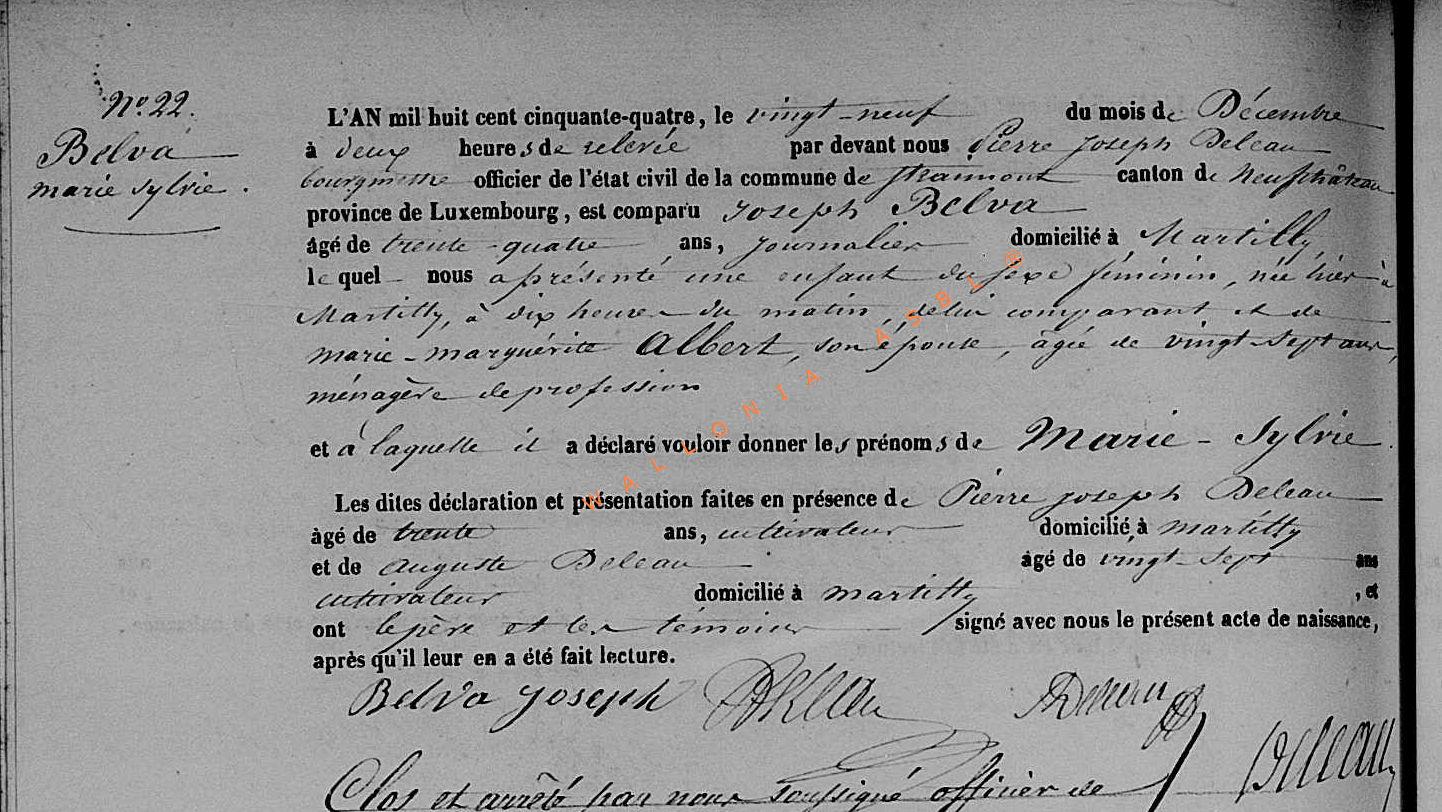 No. 22.
Belva
marie Sylvie.
L'AN mil huit cent cinquante-quatre, le vingt-neuf du mois de Décembre
à deux heures de relevée par devant nous Pierre Joseph Deleau
bourgmestre officier de l'état civil de la commune de Straimont canton de Neufchâteau
province de Luxembourg, est comparu Joseph Belva
âgé de trente-quatre ans, journalier domicilié à Martilly,
lequel nous a présenté une enfant du sexe féminin, née hier à
Martilly, à dix heures du matin, de lui comparant et de
marie-marguérite Albert, son épouse, âgée de vingt-sept ans,
ménagère de profession
et à laquelle il a déclaré vouloir donner les prénoms de Marie-Sylvie.
Les dites déclaration et présentation faites en présence de Pierre Joseph Deleau
âgé de trente ans, cultivateur domicilié à martilly
et de auguste Deleau âgé de vingt-sept ans
cultivateur domicilié à martilly, et
ont le père et les témoins signé avec nous le présent acte de naissance,
après qu'il leur en a été fait lecture.
Belva Joseph Deleau
Deleau
Clos et arrêté par nous soussigné officier de
WALLONIA ASBL